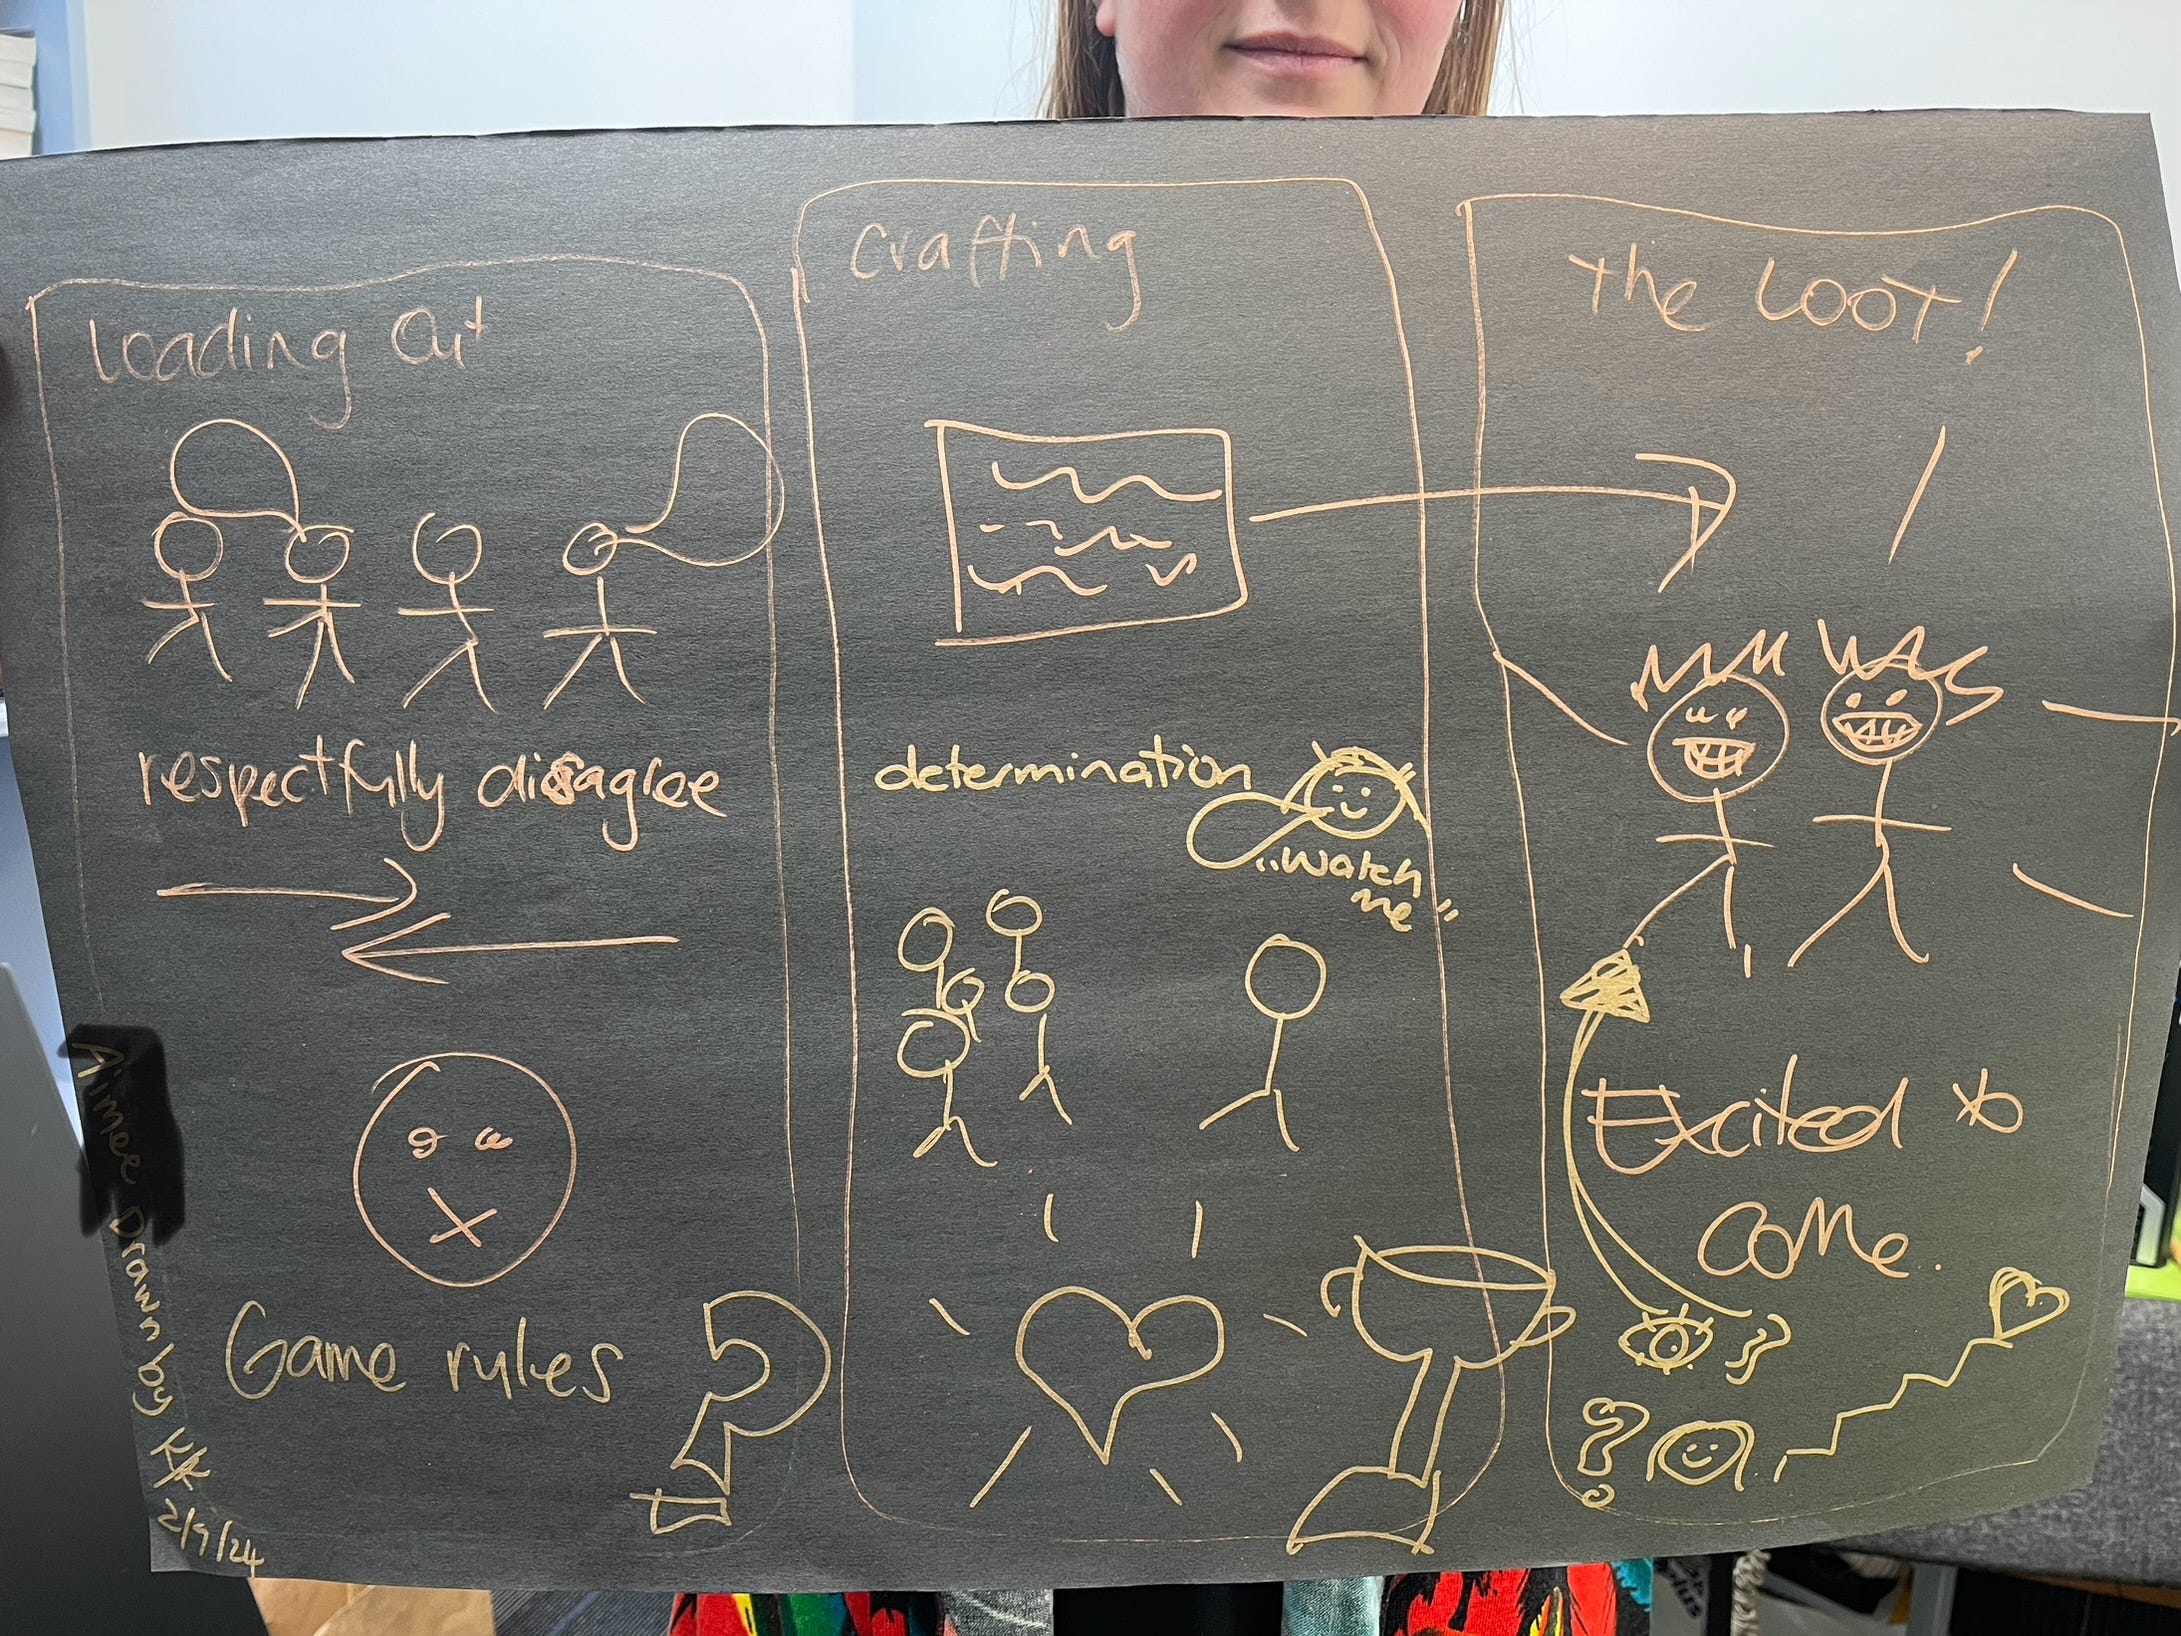 Loading Out
respectfully disagree
Game rules
crafting
determination
"watch
me"
The LOOT!
Excited to
come.
Aimee Drawn by KK
2/9/24